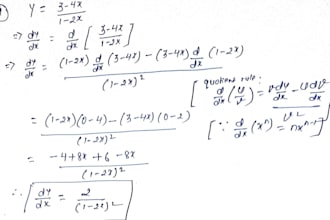 Y = 3-4x / 1-2x
⇒ dy/dx = d/dx [ 3-4x / 1-2x ]
⇒ dy/dx = (1-2x) d/dx (3-4x) - (3-4x) d/dx (1-2x) / (1-2x)²
[ quotient rule: d/dx (u/v) = v du/dx - u dv/dx / v²
= (1-2x)(0-4) - (3-4x)(0-2) / (1-2x)² [ ∵ d/dx (xⁿ) = nxⁿ⁻¹ ]
= -4+8x+6-8x / (1-2x)²
∴ dy/dx = 2 / (1-2x)²